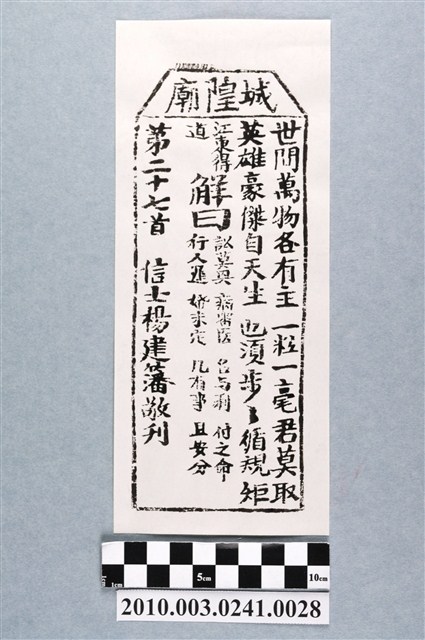 城隍廟
世間萬物各有主 一粒一毫君莫取
英雄豪傑自天生 也須步々循規矩
江東得道
解曰
訟莫興 病審醫 名与利 付之命
行人進 婚未定 凡有事 且安分
第二十七首 信士楊建藩敬刊
1cm 5cm 10cm
2010.003.0241.0028